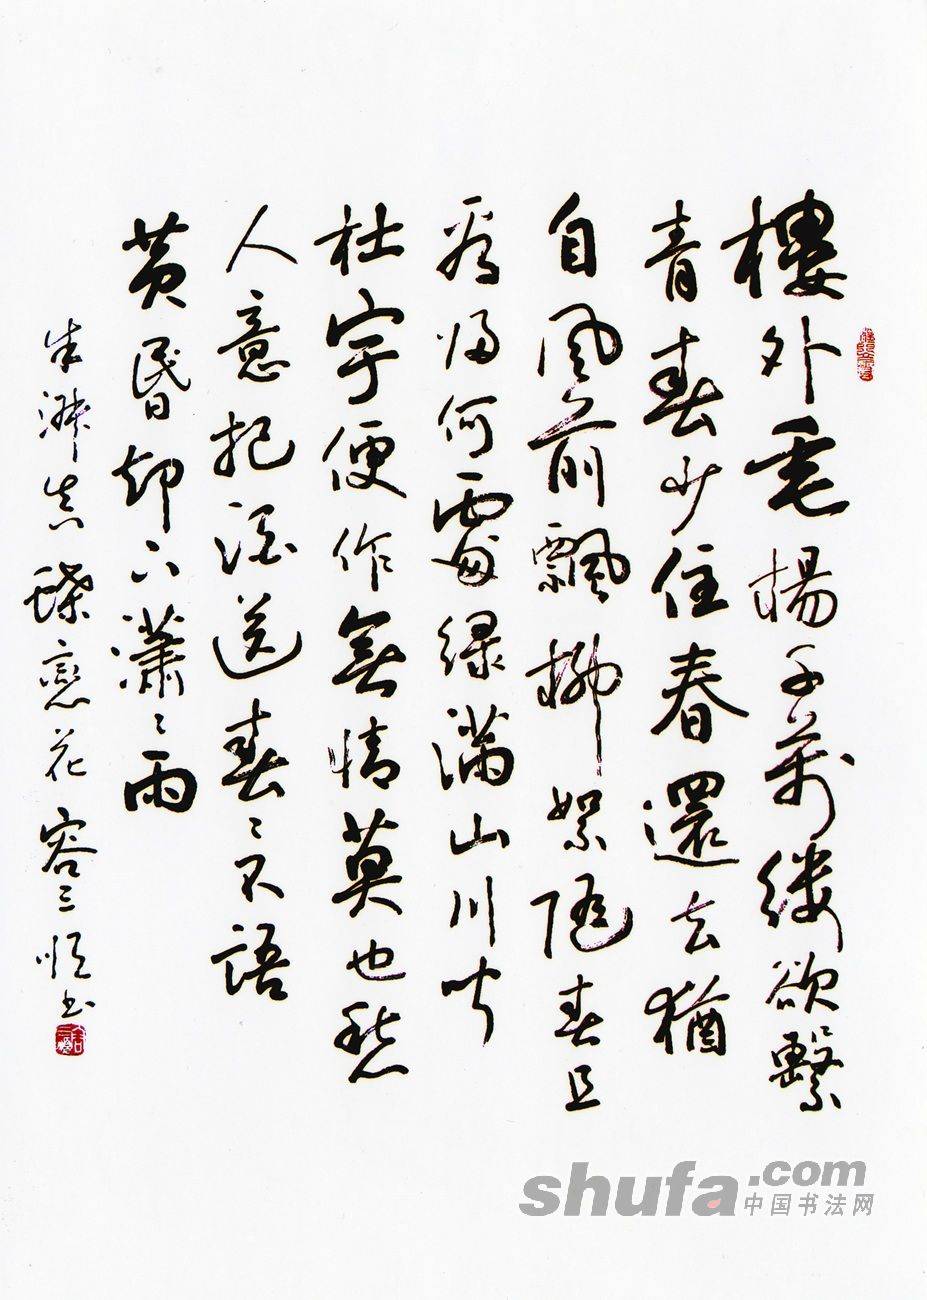 樓外垂楊千萬縷欲繫
青春少住春還去猶
自風前飄柳絮隨春且
看歸何處綠滿山川聞
杜宇便作無情莫也愁
人意把酒送春〻不語
黄昏却下瀟〻雨
朱淑真蝶戀花 容三恒书
shufa.com
中国书法网